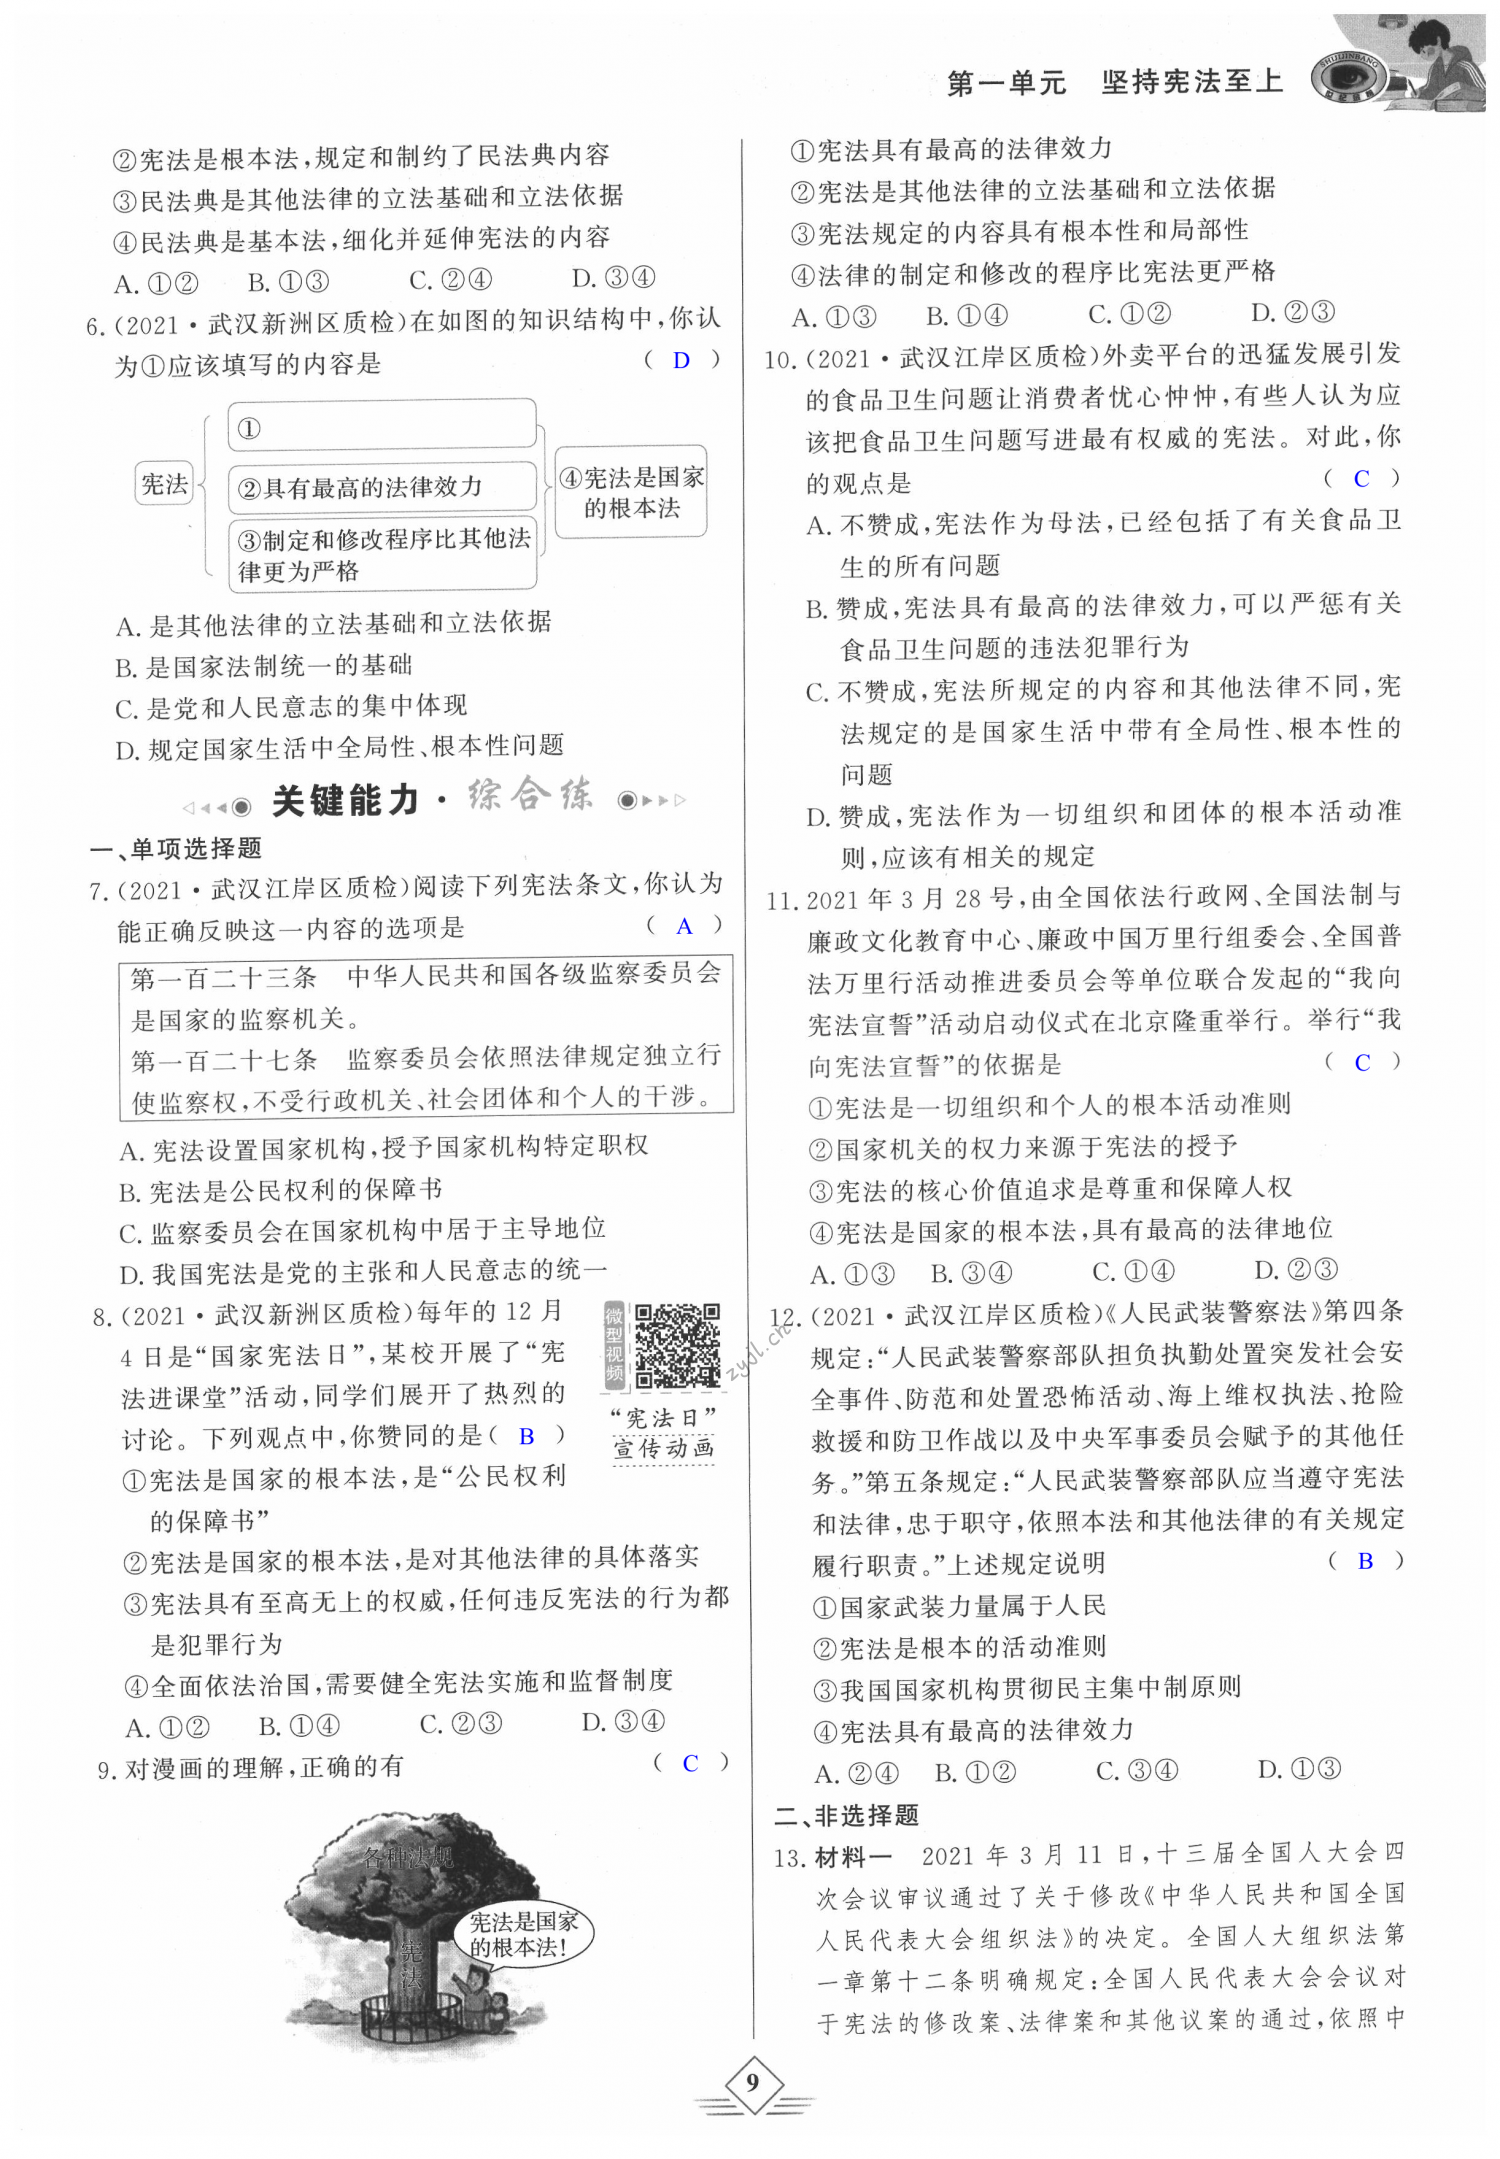 第一单元　坚持宪法至上
②宪法是根本法,规定和制约了民法典内容
③民法典是其他法律的立法基础和立法依据
④民法典是基本法,细化并延伸宪法的内容
A. ①②　B. ①③　C. ②④　D. ③④
6. (2021·武汉新洲区质检)在如图的知识结构中,你认
为①应该填写的内容是　( D )
宪法
①
②具有最高的法律效力
③制定和修改程序比其他法
律更为严格
④宪法是国家
的根本法
A. 是其他法律的立法基础和立法依据
B. 是国家法制统一的基础
C. 是党和人民意志的集中体现
D. 规定国家生活中全局性、根本性问题
关键能力·综合练
一、单项选择题
7. (2021·武汉江岸区质检)阅读下列宪法条文,你认为
能正确反映这一内容的选项是　( A )
第一百二十三条　中华人民共和国各级监察委员会
是国家的监察机关。
第一百二十七条　监察委员会依照法律规定独立行
使监察权,不受行政机关、社会团体和个人的干涉。
A. 宪法设置国家机构,授予国家机构特定职权
B. 宪法是公民权利的保障书
C. 监察委员会在国家机构中居于主导地位
D. 我国宪法是党的主张和人民意志的统一
8. (2021·武汉新洲区质检)每年的 12 月
4 日是“国家宪法日”,某校开展了“宪
法进课堂”活动,同学们展开了热烈的
讨论。下列观点中,你赞同的是( B )
微型视频
“宪法日”
宣传动画
①宪法是国家的根本法,是“公民权利
的保障书”
②宪法是国家的根本法,是对其他法律的具体落实
③宪法具有至高无上的权威,任何违反宪法的行为都
是犯罪行为
④全面依法治国,需要健全宪法实施和监督制度
A. ①②　B. ①④　C. ②③　D. ③④
9. 对漫画的理解,正确的有　( C )
各种法规
宪法
宪法是国家
的根本法!
①宪法具有最高的法律效力
②宪法是其他法律的立法基础和立法依据
③宪法规定的内容具有根本性和局部性
④法律的制定和修改的程序比宪法更严格
A. ①③　B. ①④　C. ①②　D. ②③
10. (2021·武汉江岸区质检)外卖平台的迅猛发展引发
的食品卫生问题让消费者忧心忡忡,有些人认为应
该把食品卫生问题写进最有权威的宪法。对此,你
的观点是　( C )
A. 不赞成,宪法作为母法,已经包括了有关食品卫
生的所有问题
B. 赞成,宪法具有最高的法律效力,可以严惩有关
食品卫生问题的违法犯罪行为
C. 不赞成,宪法所规定的内容和其他法律不同,宪
法规定的是国家生活中带有全局性、根本性的
问题
D. 赞成,宪法作为一切组织和团体的根本活动准
则,应该有相关的规定
11. 2021 年 3 月 28 号,由全国依法行政网、全国法制与
廉政文化教育中心、廉政中国万里行组委会、全国普
法万里行活动推进委员会等单位联合发起的“我向
宪法宣誓”活动启动仪式在北京隆重举行。举行“我
向宪法宣誓”的依据是　( C )
①宪法是一切组织和个人的根本活动准则
②国家机关的权力来源于宪法的授予
③宪法的核心价值追求是尊重和保障人权
④宪法是国家的根本法,具有最高的法律地位
A. ①③　B. ③④　C. ①④　D. ②③
12. (2021·武汉江岸区质检)《人民武装警察法》第四条
规定:“人民武装警察部队担负执勤处置突发社会安
全事件、防范和处置恐怖活动、海上维权执法、抢险
救援和防卫作战以及中央军事委员会赋予的其他任
务。”第五条规定:“人民武装警察部队应当遵守宪法
和法律,忠于职守,依照本法和其他法律的有关规定
履行职责。”上述规定说明　( B )
①国家武装力量属于人民
②宪法是根本的活动准则
③我国国家机构贯彻民主集中制原则
④宪法具有最高的法律效力
A. ②④　B. ①②　C. ③④　D. ①③
二、非选择题
13. 材料一　2021 年 3 月 11 日,十三届全国人大会四
次会议审议通过了关于修改《中华人民共和国全国
人民代表大会组织法》的决定。全国人大组织法第
一章第十二条明确规定:全国人民代表大会会议对
于宪法的修改案、法律案和其他议案的通过,依照中
zyjl.cn
9